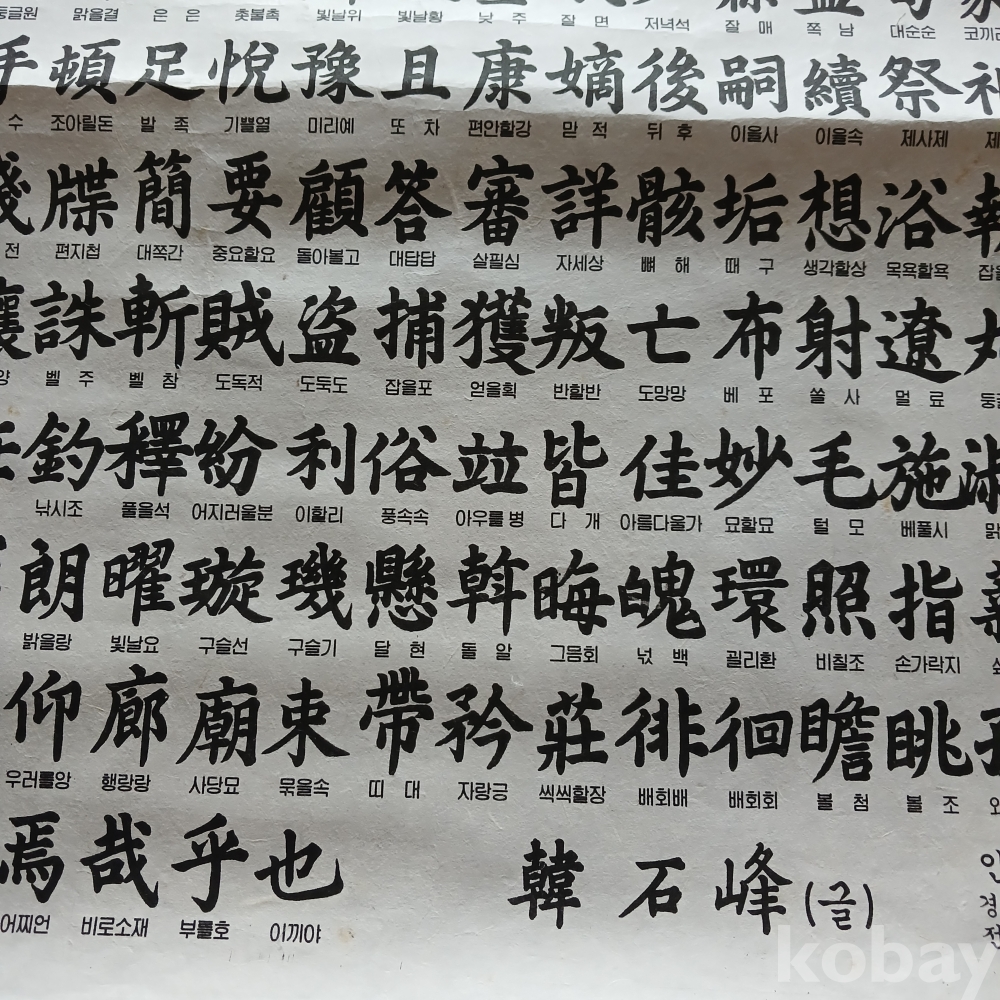 둥글원 맑을결 은 은 촛불촉 빛날위 빛날황 낮 주 잘 면 저녁석 잘 매 쪽 남 대순순 코끼리
手 頓 足 悅 豫 且 康 嫡 後 嗣 續 祭 祀
수 조아릴돈 발 족 기쁠열 미리예 또 차 편안할강 맏 적 뒤 후 이을사 이을속 제사제 제
牋 牒 簡 要 顧 答 審 詳 骸 垢 想 浴 執
전 편지첩 대쪽간 중요할요 돌아볼고 대답답 살필심 자세상 뼈 해 때 구 생각할상 목욕할욕 잡을
誅 斬 賊 盜 捕 獲 叛 亡 布 射 遼 丸
양 벨 주 벨 참 도독적 도둑도 잡을포 얻을획 반할반 도망망 베 포 쏠 사 멀 료 둥글
釣 釋 紛 利 俗 竝 皆 佳 妙 毛 施 淑
낚시조 풀을석 어지러울분 이할리 풍속속 아우를병 다 개 아름다울가 묘할묘 털 모 베풀시 맑
朗 曜 璇 璣 懸 斡 晦 魄 環 照 指
밝을랑 빛날요 구슬선 구슬기 달 현 돌 알 그믐회 넋 백 굍리환 비칠조 손가락지
仰 廊 廟 束 帶 矜 莊 徘 徊 瞻 眺
우러를앙 행랑랑 사당묘 묶을속 띠 대 자랑긍 씩씩할장 배회배 배회회 볼 첨 볼 조 외
焉 哉 乎 也 韓 石 峰 (글)
어찌언 비로소재 부를호 이끼야
인
경
전
kobay